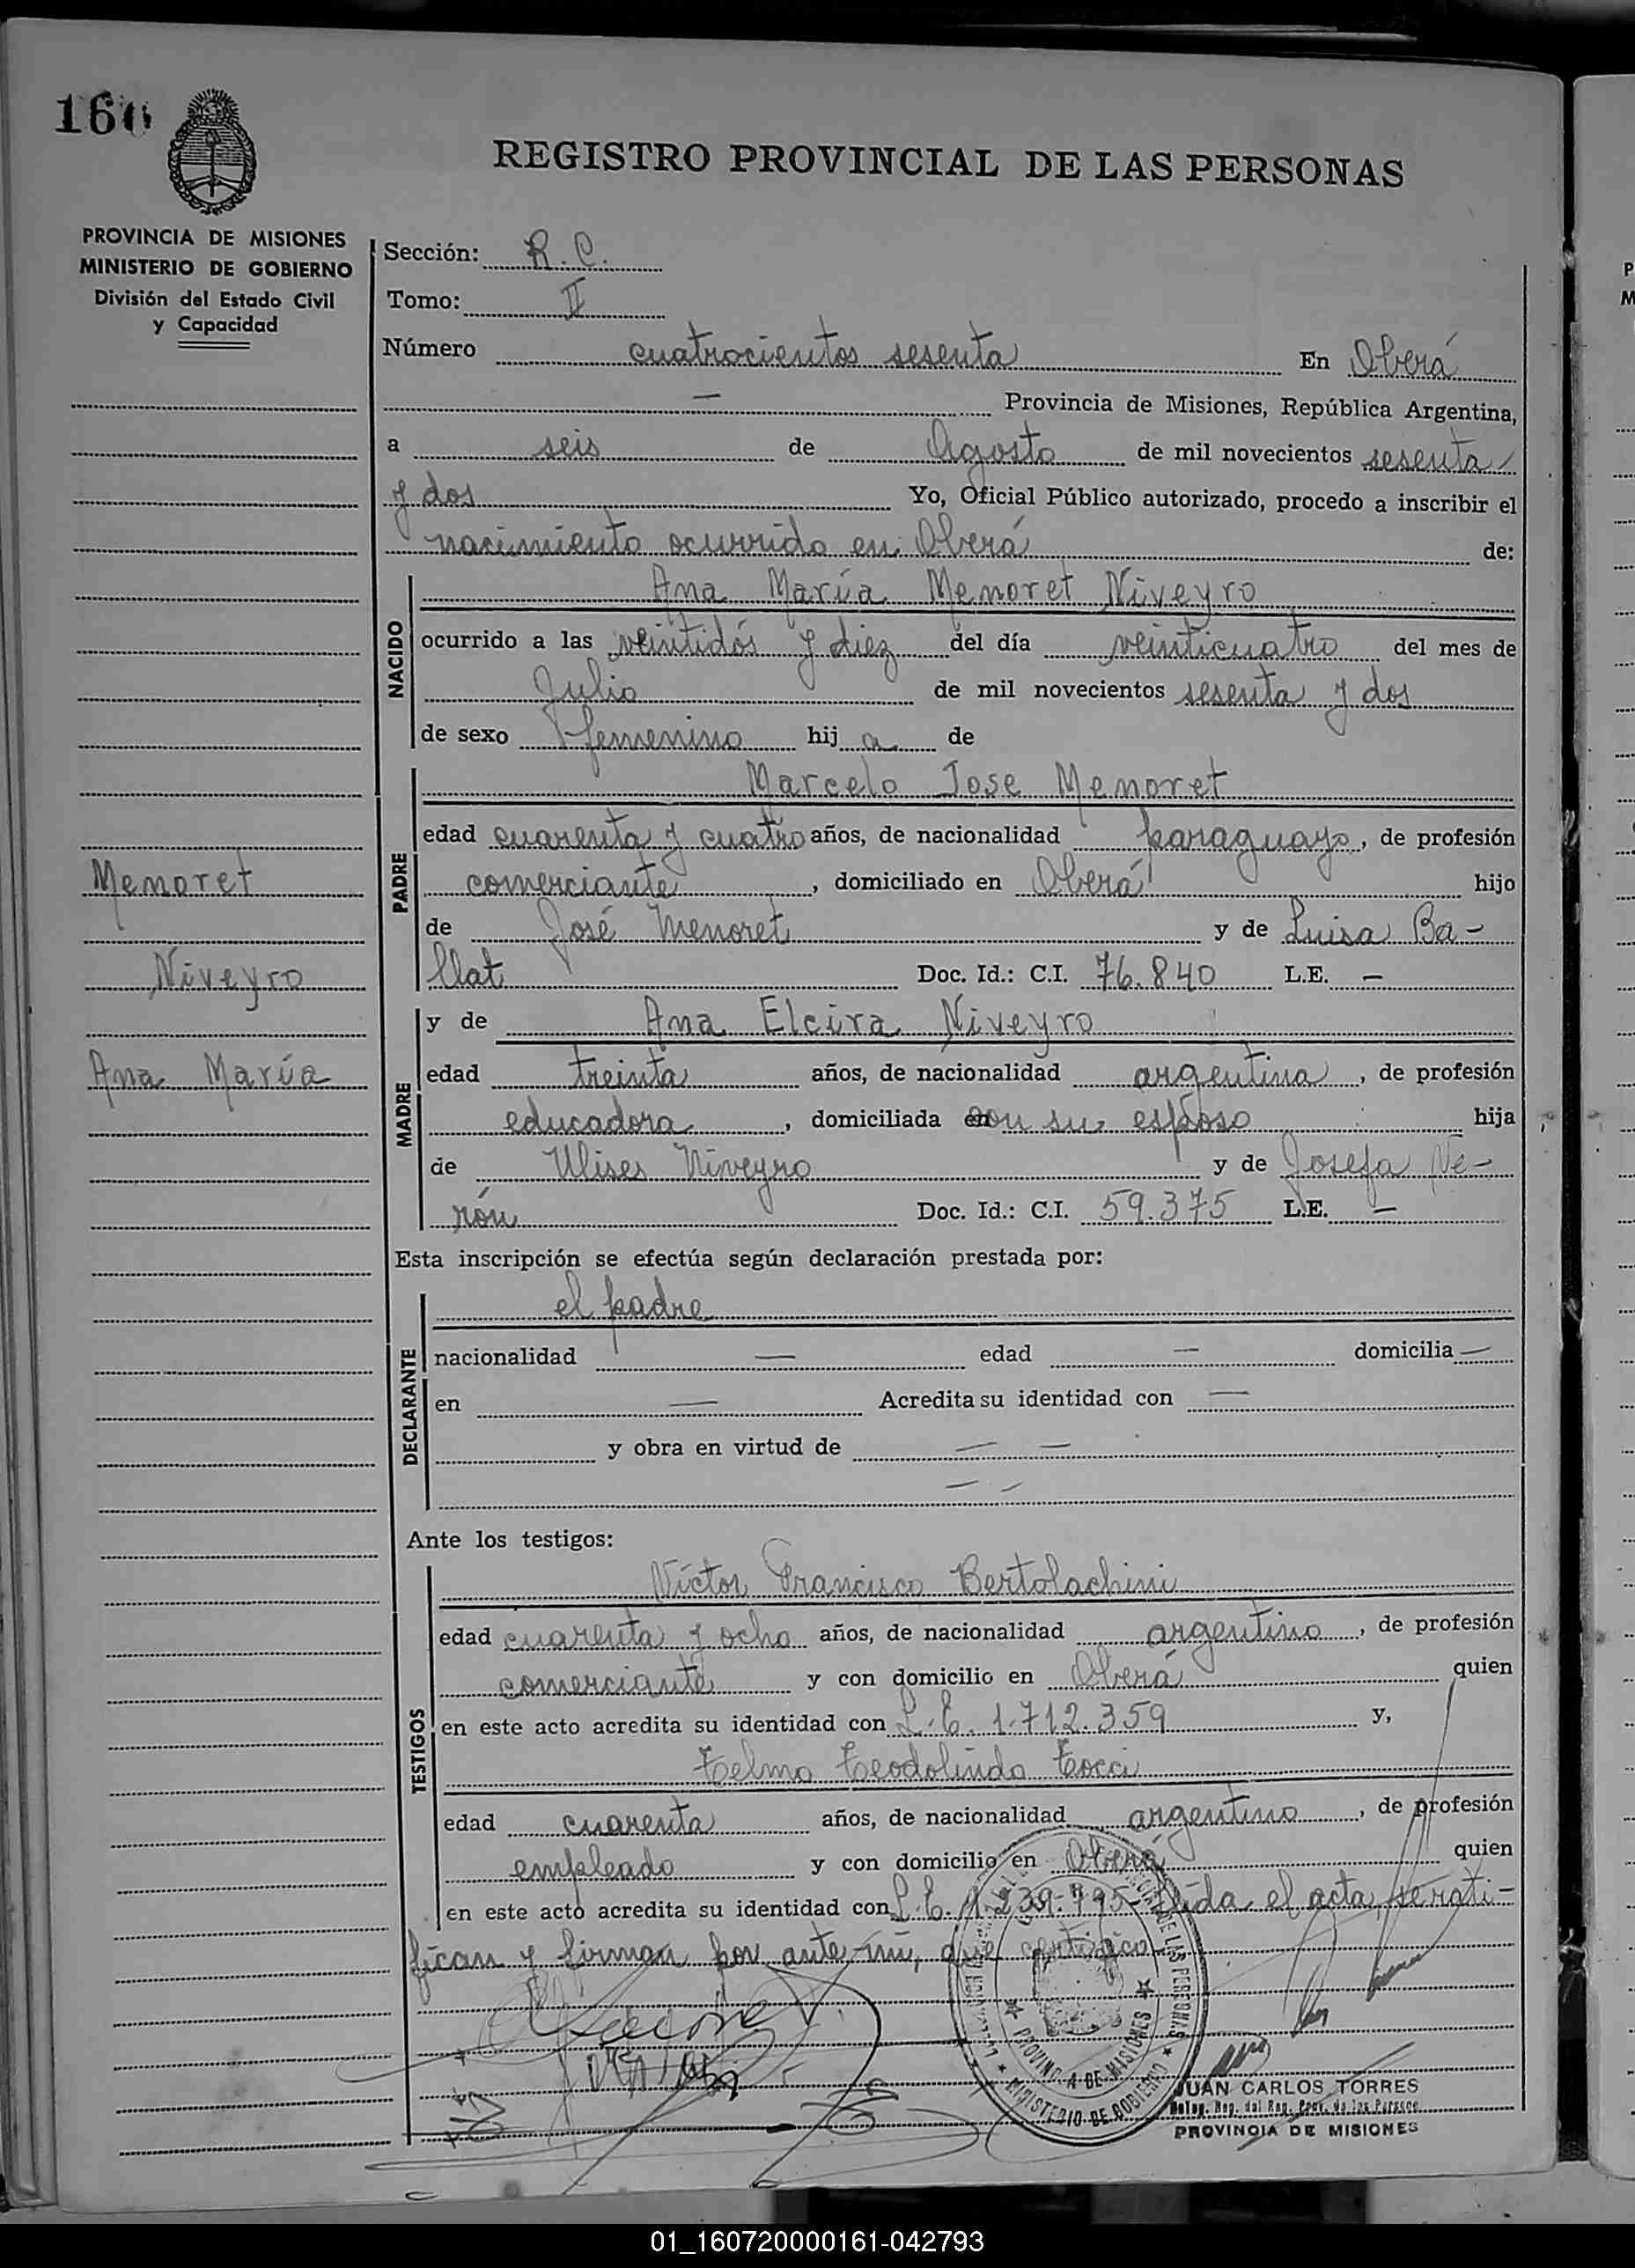 REGISTRO PROVINCIAL DE LAS PERSONAS
PROVINCIA DE MISIONES
MINISTERIO DE GOBIERNO
División del Estado Civil
y Capacidad
Sección: R. C.
Tomo: II
Número cuatrocientos sesenta En Oberá
— Provincia de Misiones, República Argentina,
a seis de Agosto de mil novecientos sesenta
y dos Yo, Oficial Público autorizado, procedo a inscribir el
nacimiento ocurrido en Oberá de:
NACIDO
Ana María Menoret Niveyro
ocurrido a las veintidós y diez del día veinticuatro del mes de
Julio de mil novecientos sesenta y dos
de sexo femenino hij a de
PADRE
Marcelo Jose Menoret
edad cuarenta y cuatro años, de nacionalidad paraguayo, de profesión
comerciante, domiciliado en Oberá hijo
de José Menoret y de Luisa Ba-
llat Doc. Id.: C.I. 76.840 L.E. —
MADRE
y de Ana Elcira Niveyro
edad treinta años, de nacionalidad argentina, de profesión
educadora, domiciliada con su esposo hija
de Ulises Niveyro y de Josefa Ne-
rón Doc. Id.: C.I. 59.375 L.E. —
Menoret
Niveyro
Ana María
Esta inscripción se efectúa según declaración prestada por:
DECLARANTE
el padre
nacionalidad — edad — domicilia —
en — Acredita su identidad con —
y obra en virtud de — —
— —
Ante los testigos:
TESTIGOS
Víctor Francisco Bertolachini
edad cuarenta y ocho años, de nacionalidad argentino, de profesión
comerciante y con domicilio en Oberá quien
en este acto acredita su identidad con L.E. 1.712.359 y,
Telmo Teodolindo Tocci
edad cuarenta años, de nacionalidad argentino, de profesión
empleado y con domicilio en Oberá quien
en este acto acredita su identidad con L.E. Leída el acta, se rati-
fican y firman por ante mí, que certifico
PROVINCIA DE MISIONES
MINISTERIO DE GOBIERNO
DE LAS PERSONAS
JUAN CARLOS TORRES
Deleg. Reg. del Reg. Prov. de las Personas
PROVINCIA DE MISIONES
01_160720000161-042793